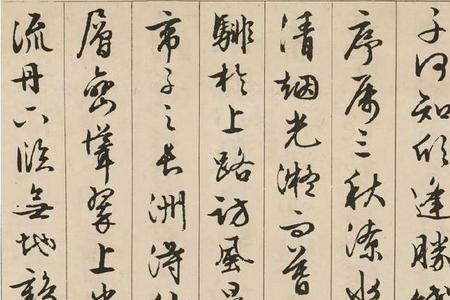 子何知逢勝
序属三秋潦水
清烟光凝而暮
騑於上路訪風景
帝子之長洲得
層巒聳翠上出
流丹下臨無地